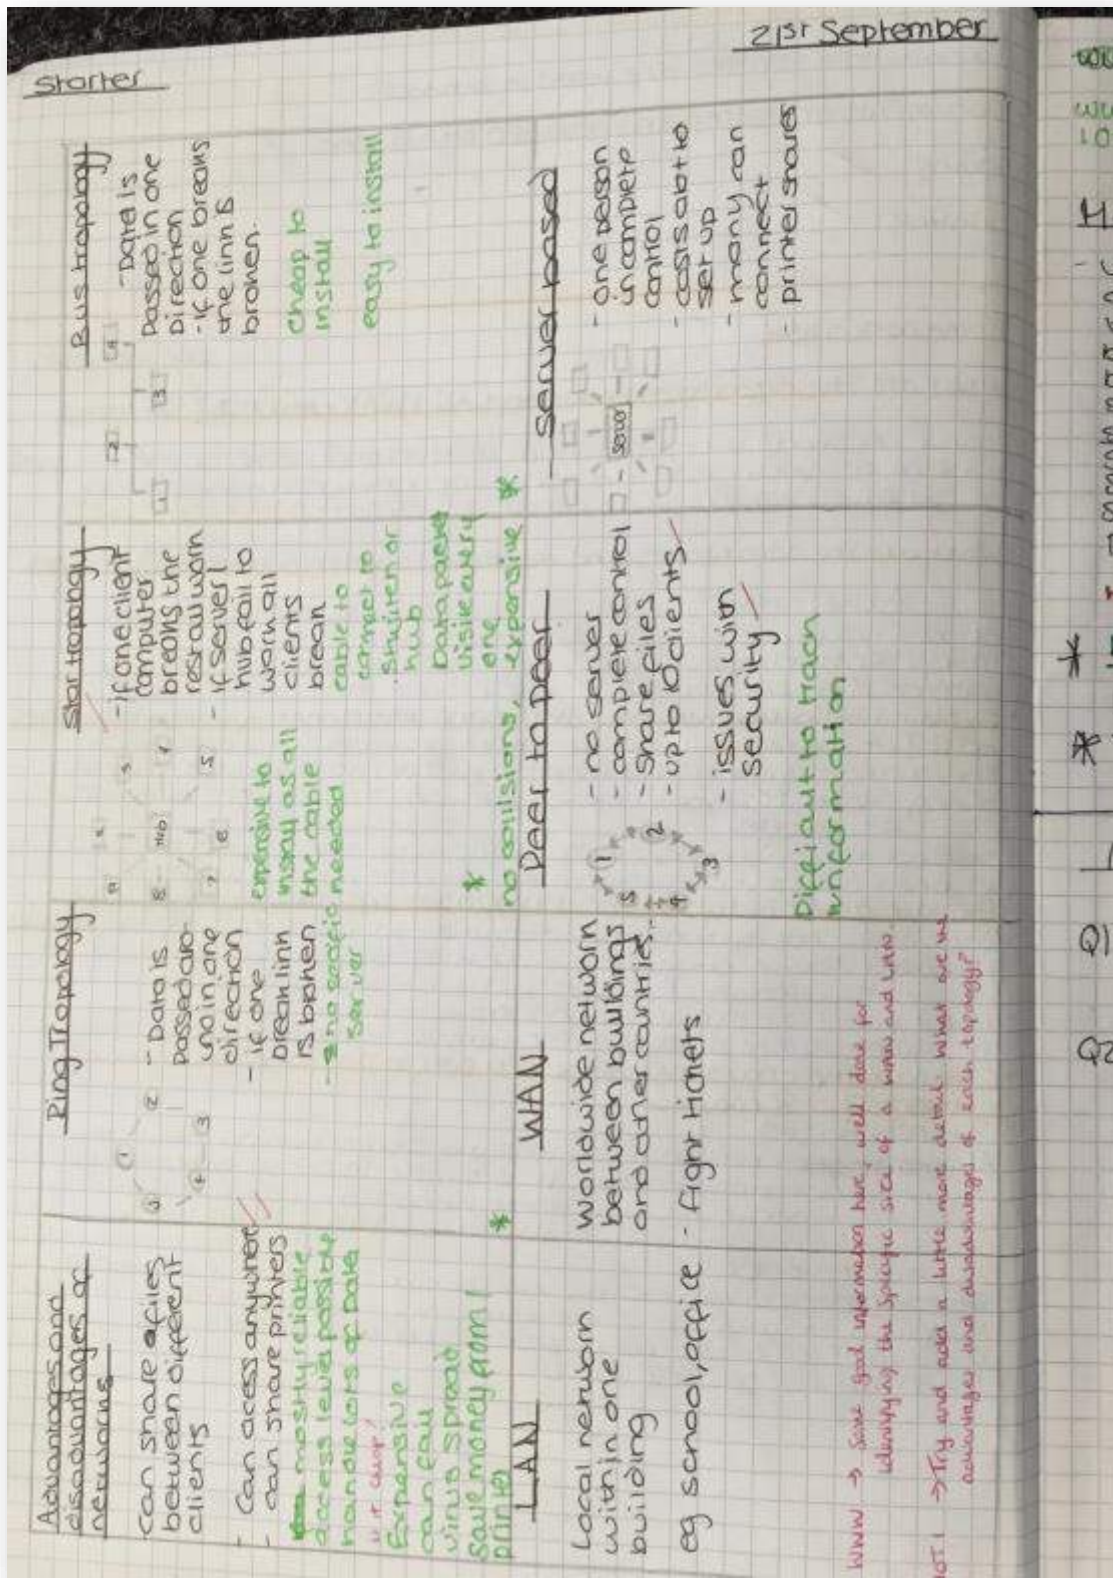 21st September
Starter
Advantages and
disadvantages of
networks
Can share files
between different
clients
- Can access anywhere
- can share printers
mostly reliable
access levels possible
handle lots of Data
Expensive
can fail
virus spread
save money from 1
printer
Ring Tropology
1
2
3
4
5
- Data is
passed aro-
und in one
direction
- if one
break link
is broken
server
Star topology
Hub
1
5
6
7
8
- if one client
computer
breaks the
rest all work
- if server/
hub fail to
work all
clients
break
expensive to
install as all
the cable
needed
cable to
connect to
switch or
hub
Data packets
visit every
one
* no collisions, expensive *
Bus tropology
1
2
3
4
- Data is
passed in one
Direction
- if one breaks
the link is
broken.
Cheap to
install
easy to install
LAN
Local network
within one
building
eg school, office
*
WAN
Worldwide network
between buildings
and other countries.
- flight tickets
Peer to peer
1
2
3
4
5
- no server
- complete control
- Share files
- up to 10 clients
- issues with
security
Difficult to track
information
Server based
- one person
in complete
control
- costs a bt to
set up
- many can
connect
- printer shares
WWW → some good information here, well done for
identifying the specific size of a WAN and LAN
→ Try and add a little more detail. What are the
advantages and disadvantages of each topology?